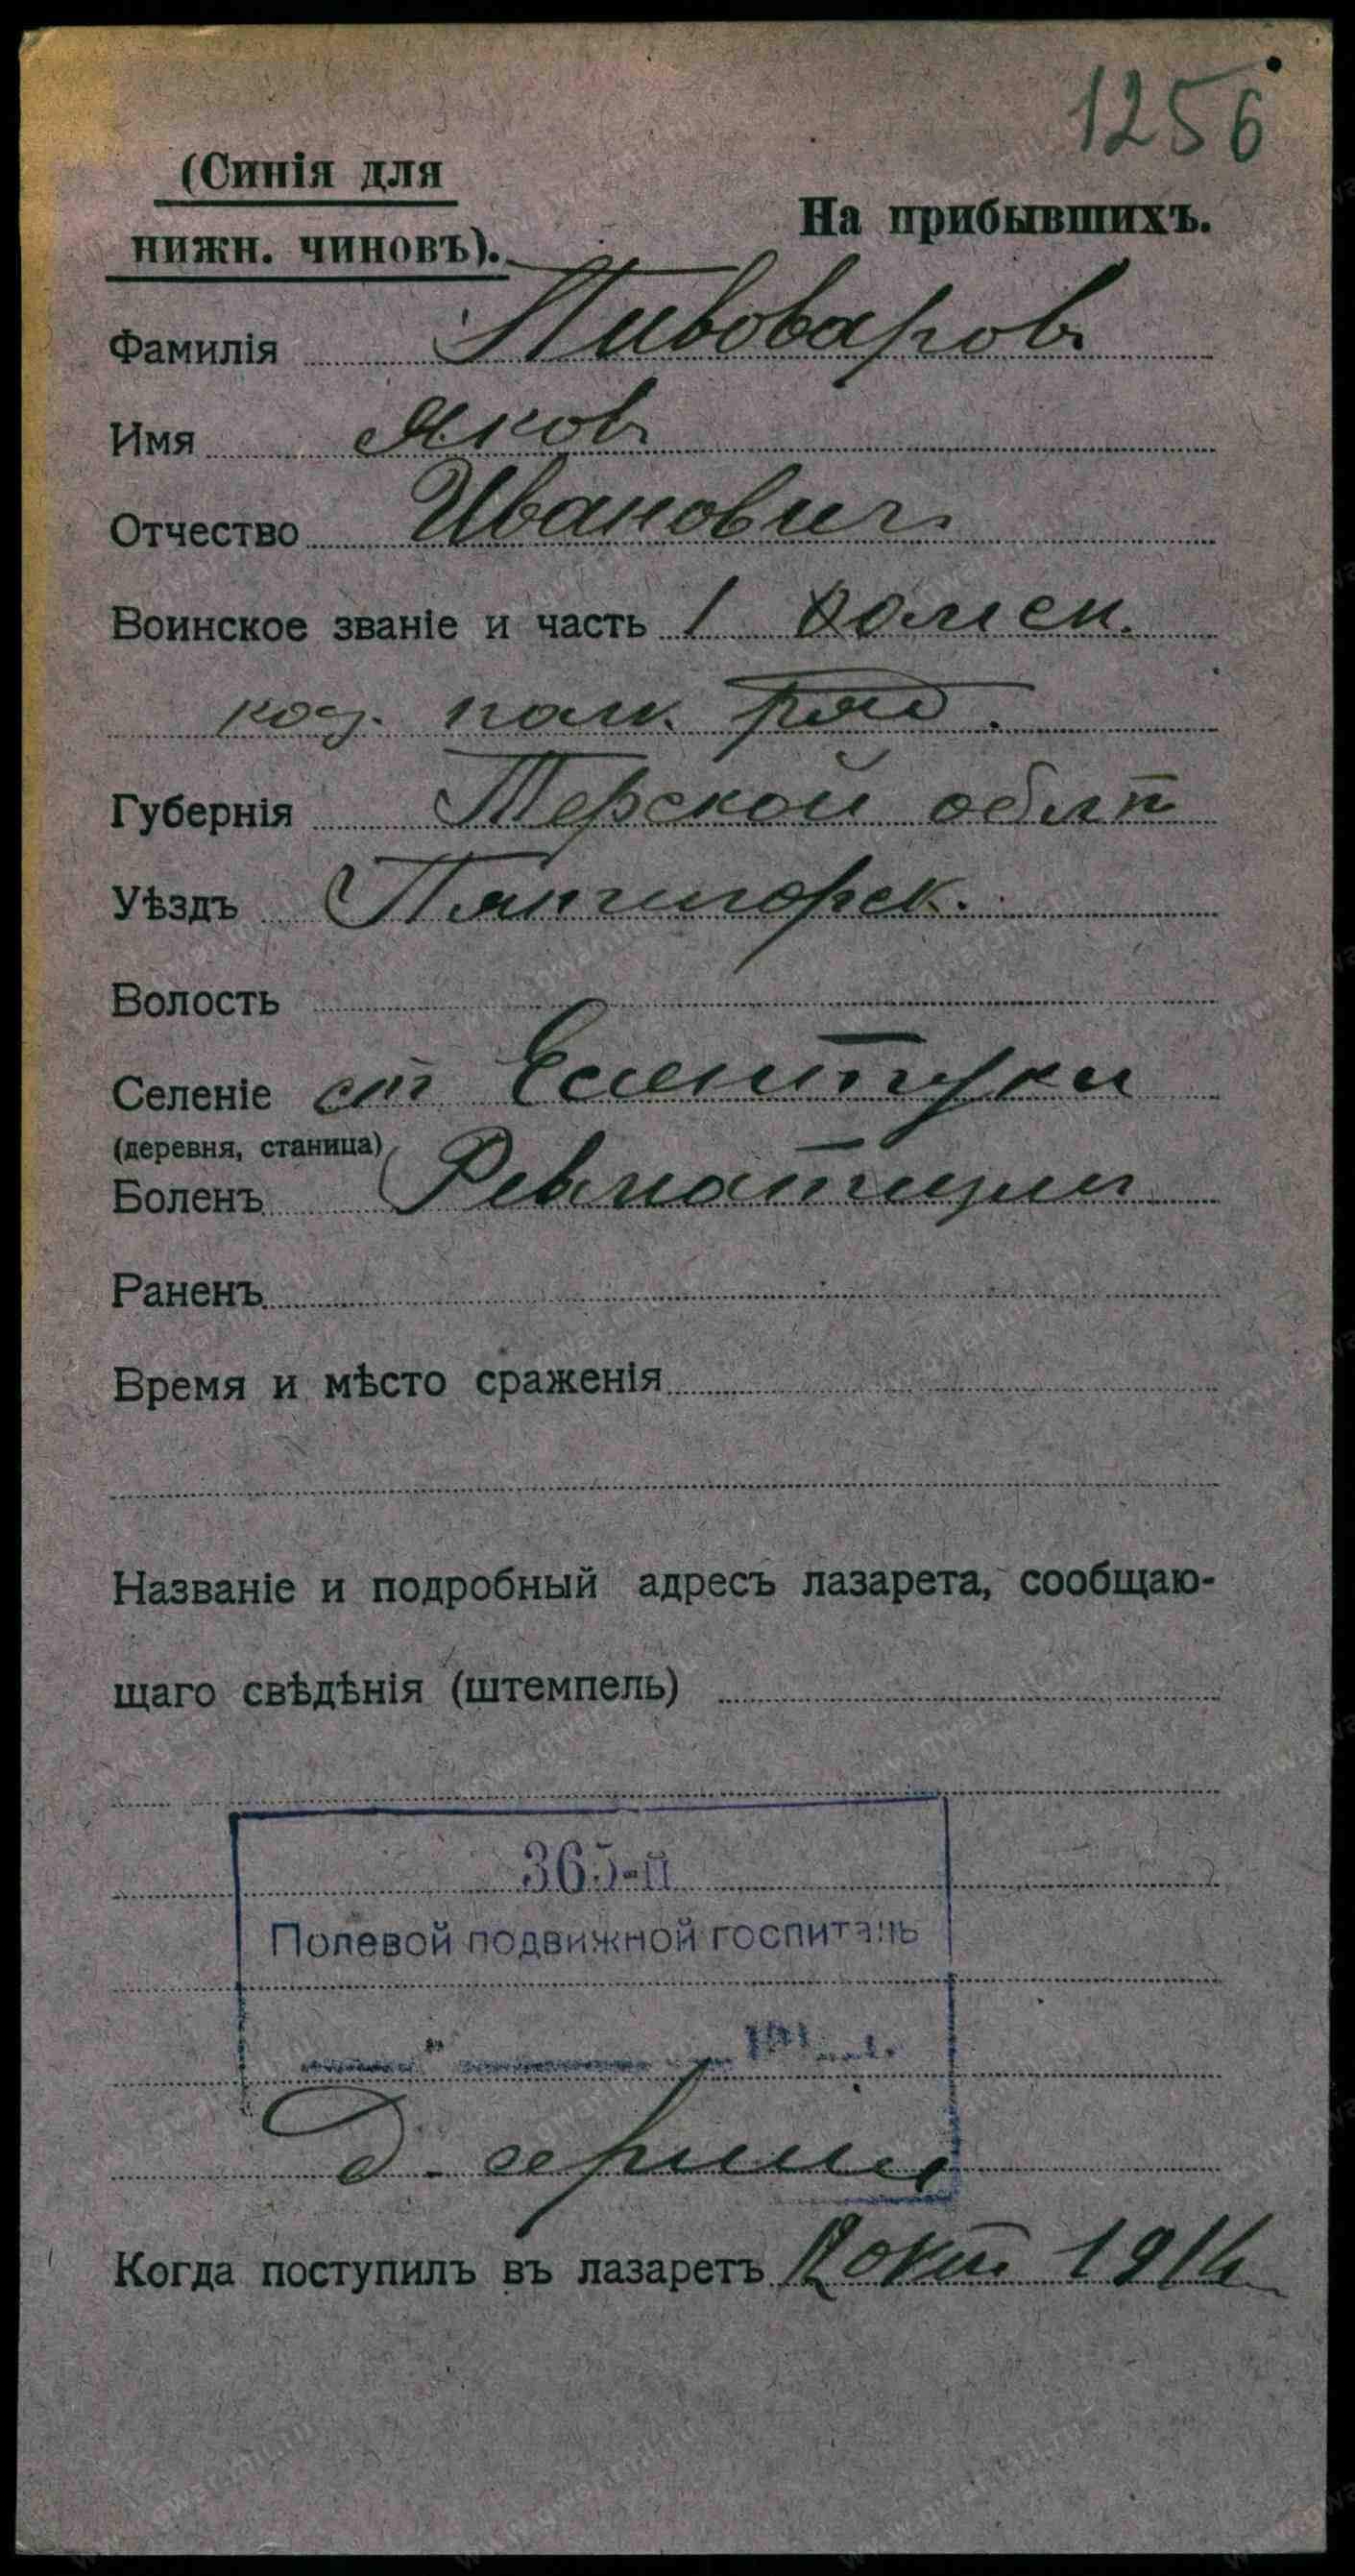 1256
(Синія для
нижн. чиновъ).
На прибывшихъ.
Фамилія Пивоваров
Имя Яков
Отчество Иванович
Воинское званіе и часть 1
каз. полк. ряд.
Губернія Терской обл
Уѣздъ Пятигорск.
Волость
Селеніе ст Есентуки
(деревня, станица)
Боленъ Ревматизм
Раненъ
Время и мѣсто сраженія
Названіе и подробный адресъ лазарета, сообщаю-
щаго свѣдѣнія (штемпель)
365-й
Полевой подвижной госпиталь
Д.
Когда поступилъ въ лазаретъ окт